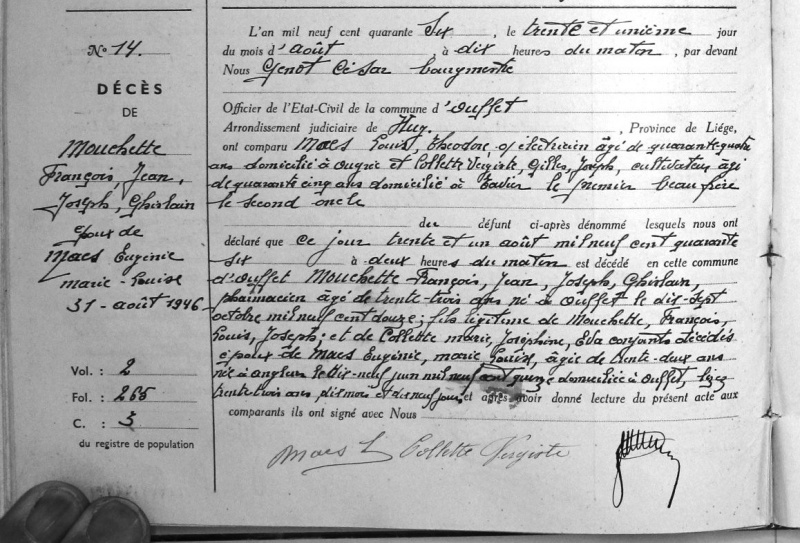 N° 14.
DÉCÈS
DE
Mouchette
François, Jean,
Joseph, Ghislain
époux de
Maes Eugénie
marie-Louise
31-août 1946
Vol. : 2
Fol. : 265
C. : 5
du registre de population
L'an mil neuf cent quarante six , le trente et unième jour
du mois d'août , à dix heures du matin , par devant
Nous Genot César bourgmestre
Officier de l'Etat-Civil de la commune d'Ouffet
Arrondissement judiciaire de Huy. , Province de Liége,
ont comparu Maes Louis, Théodore, électricien âgé de quarante-quatre
ans domicilié à Ougrée et Collette Vergiste, Gilles, Joseph, cultivateur âgé
de quarante cinq ans domicilié à Tavier le premier beau frère
le second oncle
du défunt ci-après dénommé lesquels nous ont
déclaré que ce jour trente et un août mil neuf cent quarante
six à deux heures du matin est décédé en cette commune
d'Ouffet Mouchette François, Jean, Joseph, Ghislain,
pharmacien âgé de trente-trois ans né à Ouffet le dix-sept
octobre mil neuf cent douze; fils légitime de Mouchette, François,
Louis, Joseph; et de Collette marie, Joséphine, Eva conjoints décédés
époux de Maes Eugénie, marie Louise, âgée de trente-deux ans
née à le dix-neuf juin mil neuf cent domiciliée à Ouffet,
trente trois ans, dix mois et dix neuf jours, et après avoir donné lecture du présent acte aux
comparants ils ont signé avec Nous
Maes L Collette Vergiste